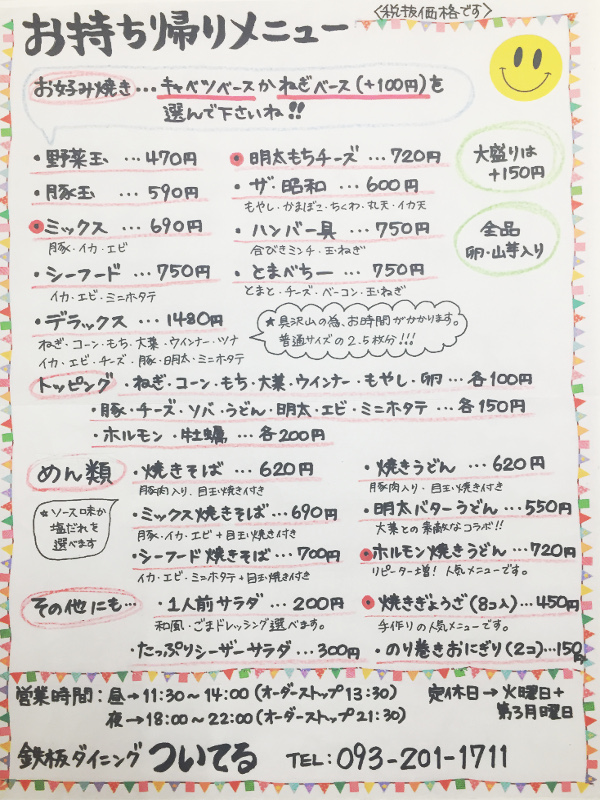 お持ち帰りメニュー
<税抜価格です>
お好み焼き…キャベツベースかねぎベース(+100円)を
選んで下さいね!!
・野菜玉 …470円
・豚玉 …590円
・ミックス …690円
豚・イカ・エビ
・シーフード …750円
イカ・エビ・ミニホタテ
・デラックス …1480円
ねぎ・コーン・もち・大葉・ウインナー・ツナ
イカ・エビ・チーズ・豚・明太・ミニホタテ
・明太もちチーズ …720円
・ザ・昭和 …600円
もやし・かまぼこ・ちくわ・丸天・イカ天
・ハンバー具 …750円
合びきミンチ・玉ねぎ
・とまべちー …750円
とまと・チーズ・ベーコン・玉ねぎ
★具沢山の為、お時間がかかります。
普通サイズの2.5枚分!!!
大盛りは
+150円
全品
卵・山芋入り
トッピング・ねぎ・コーン・もち・大葉・ウインナー・もやし・卵…各100円
・豚・チーズ・ソバ・うどん・明太・エビ・ミニホタテ …各150円
・ホルモン・牡蠣 …各200円
めん類
★ソース味か
塩だれを
選べます
・焼きそば …620円
豚肉入り、目玉焼き付き
・ミックス焼きそば…690円
豚・イカ・エビ+目玉焼き付き
・シーフード焼きそば…700円
イカ・エビ・ミニホタテ+目玉焼き付き
・焼きうどん …620円
豚肉入り、目玉焼き付き
・明太バターうどん …550円
大葉との素敵なコラボ!!
・ホルモン焼きうどん…720円
リピーター増!人気メニューです。
その他にも…
・1人前サラダ …200円
和風・ごまドレッシング選べます。
・たっぷりシーザーサラダ …300円
・焼きぎょうざ(8コ入)…450円
手作りの人気メニューです。
・のり巻きおにぎり(2コ)…150円
営業時間:昼→11:30～14:00(オーダーストップ13:30)
夜→18:00～22:00(オーダーストップ21:30)
定休日→火曜日+
第3月曜日
鉄板ダイニング ついてる TEL:093-201-1711